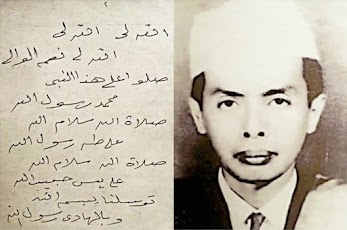 الله لى الله لى
الله لى نعم الوالى
صلوا على هذا النبى
محمد رسول الله
صلاة الله سلام الله
على طه رسول الله
صلاة الله سلام الله
على يس حبيب الله
توسلنا ببسم الله
وبالهادى رسول الله